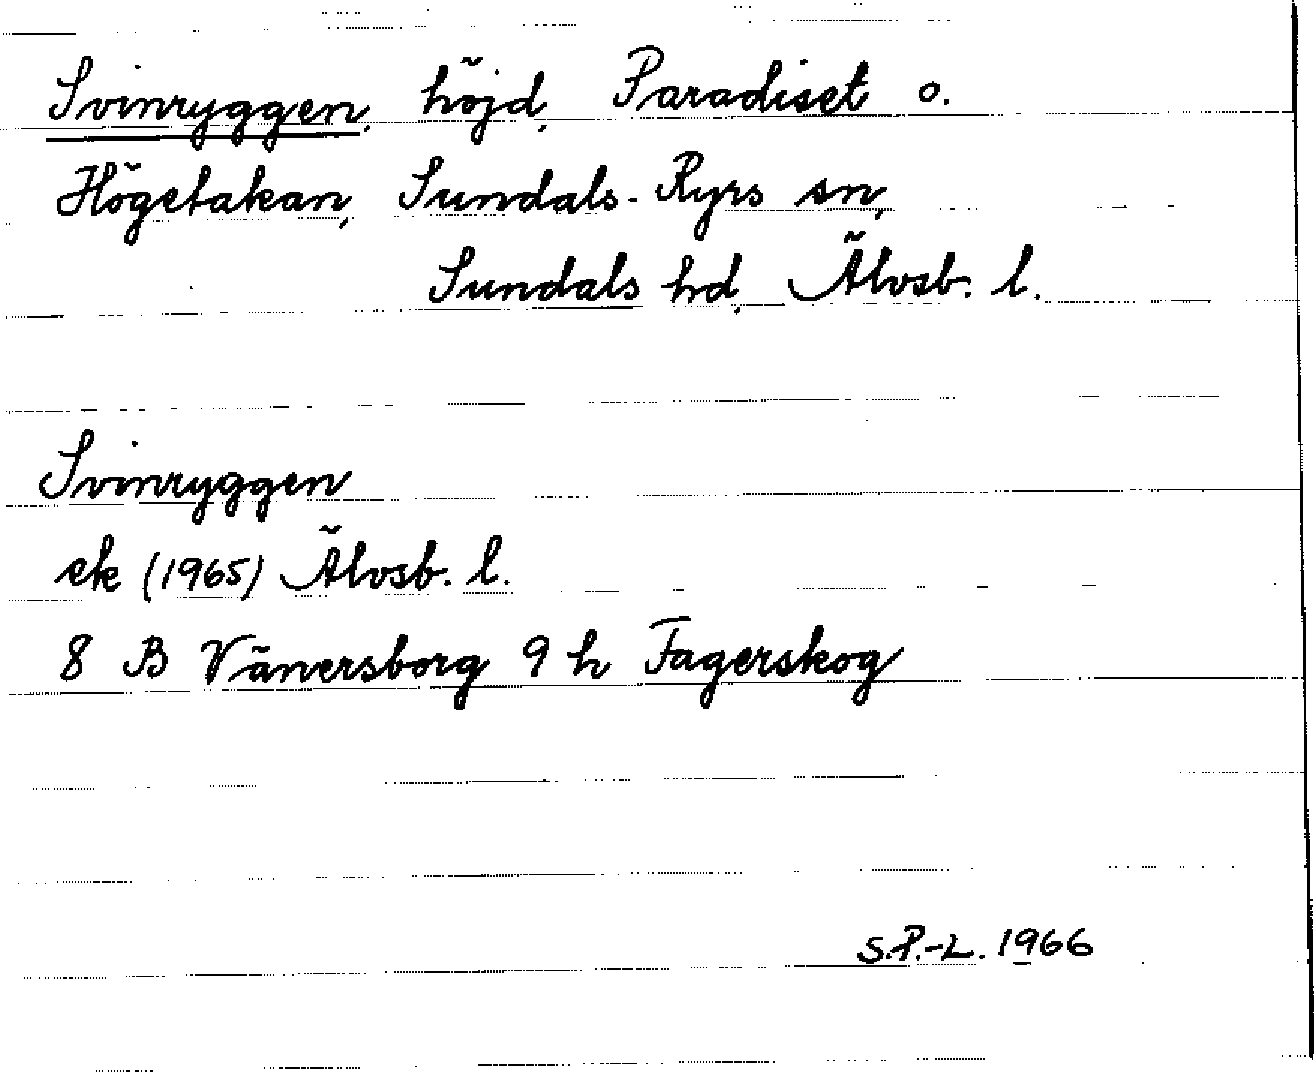 Svinryggen, höjd, Paradiset o.
Högetakan, Sundals-Ryrs sn,
Sundals hd, Älvsb. l.
Svinryggen
ek (1965) Älvsb. l.
8 B Vänersborg 9 h Fagerskog
S.P.-L. 1966